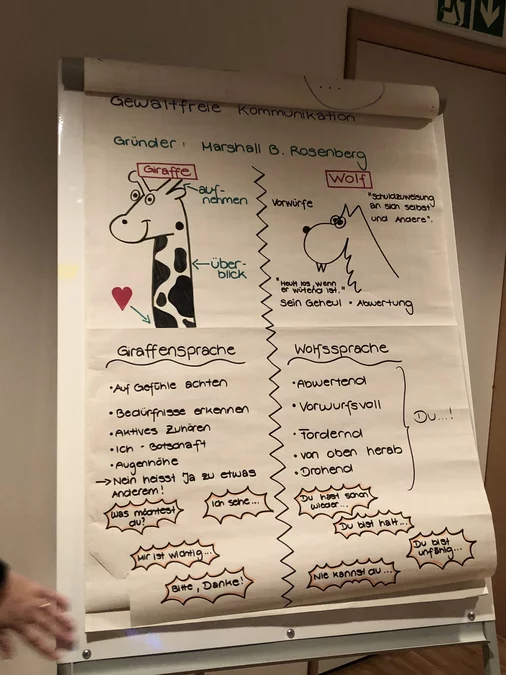 Gewaltfreie Kommunikation
Gründer: Marshall B. Rosenberg
Giraffe
auf-
nehmen
über-
blick
Wolf
Vorwürfe
"Schuldzuweisung
an sich selbst
und Andere".
"Heult los, wenn
er wütend ist."
Sein Geheul • Abwertung
Giraffensprache
• Auf Gefühle achten
• Bedürfnisse erkennen
• Aktives Zuhören
• Ich - Botschaft
• Augenhöhe
→ Nein heisst Ja zu etwas
Anderem!
Was möchtest
du?
Ich sehe...
Mir ist wichtig...
Bitte, Danke!
Wolfssprache
• Abwertend
• Vorwurfsvoll
• Fordernd
• von oben herab
• Drohend
Du...!
Du hast schon
wieder...
Du bist halt...
Du bist
unfähig...
Nie kannst du...